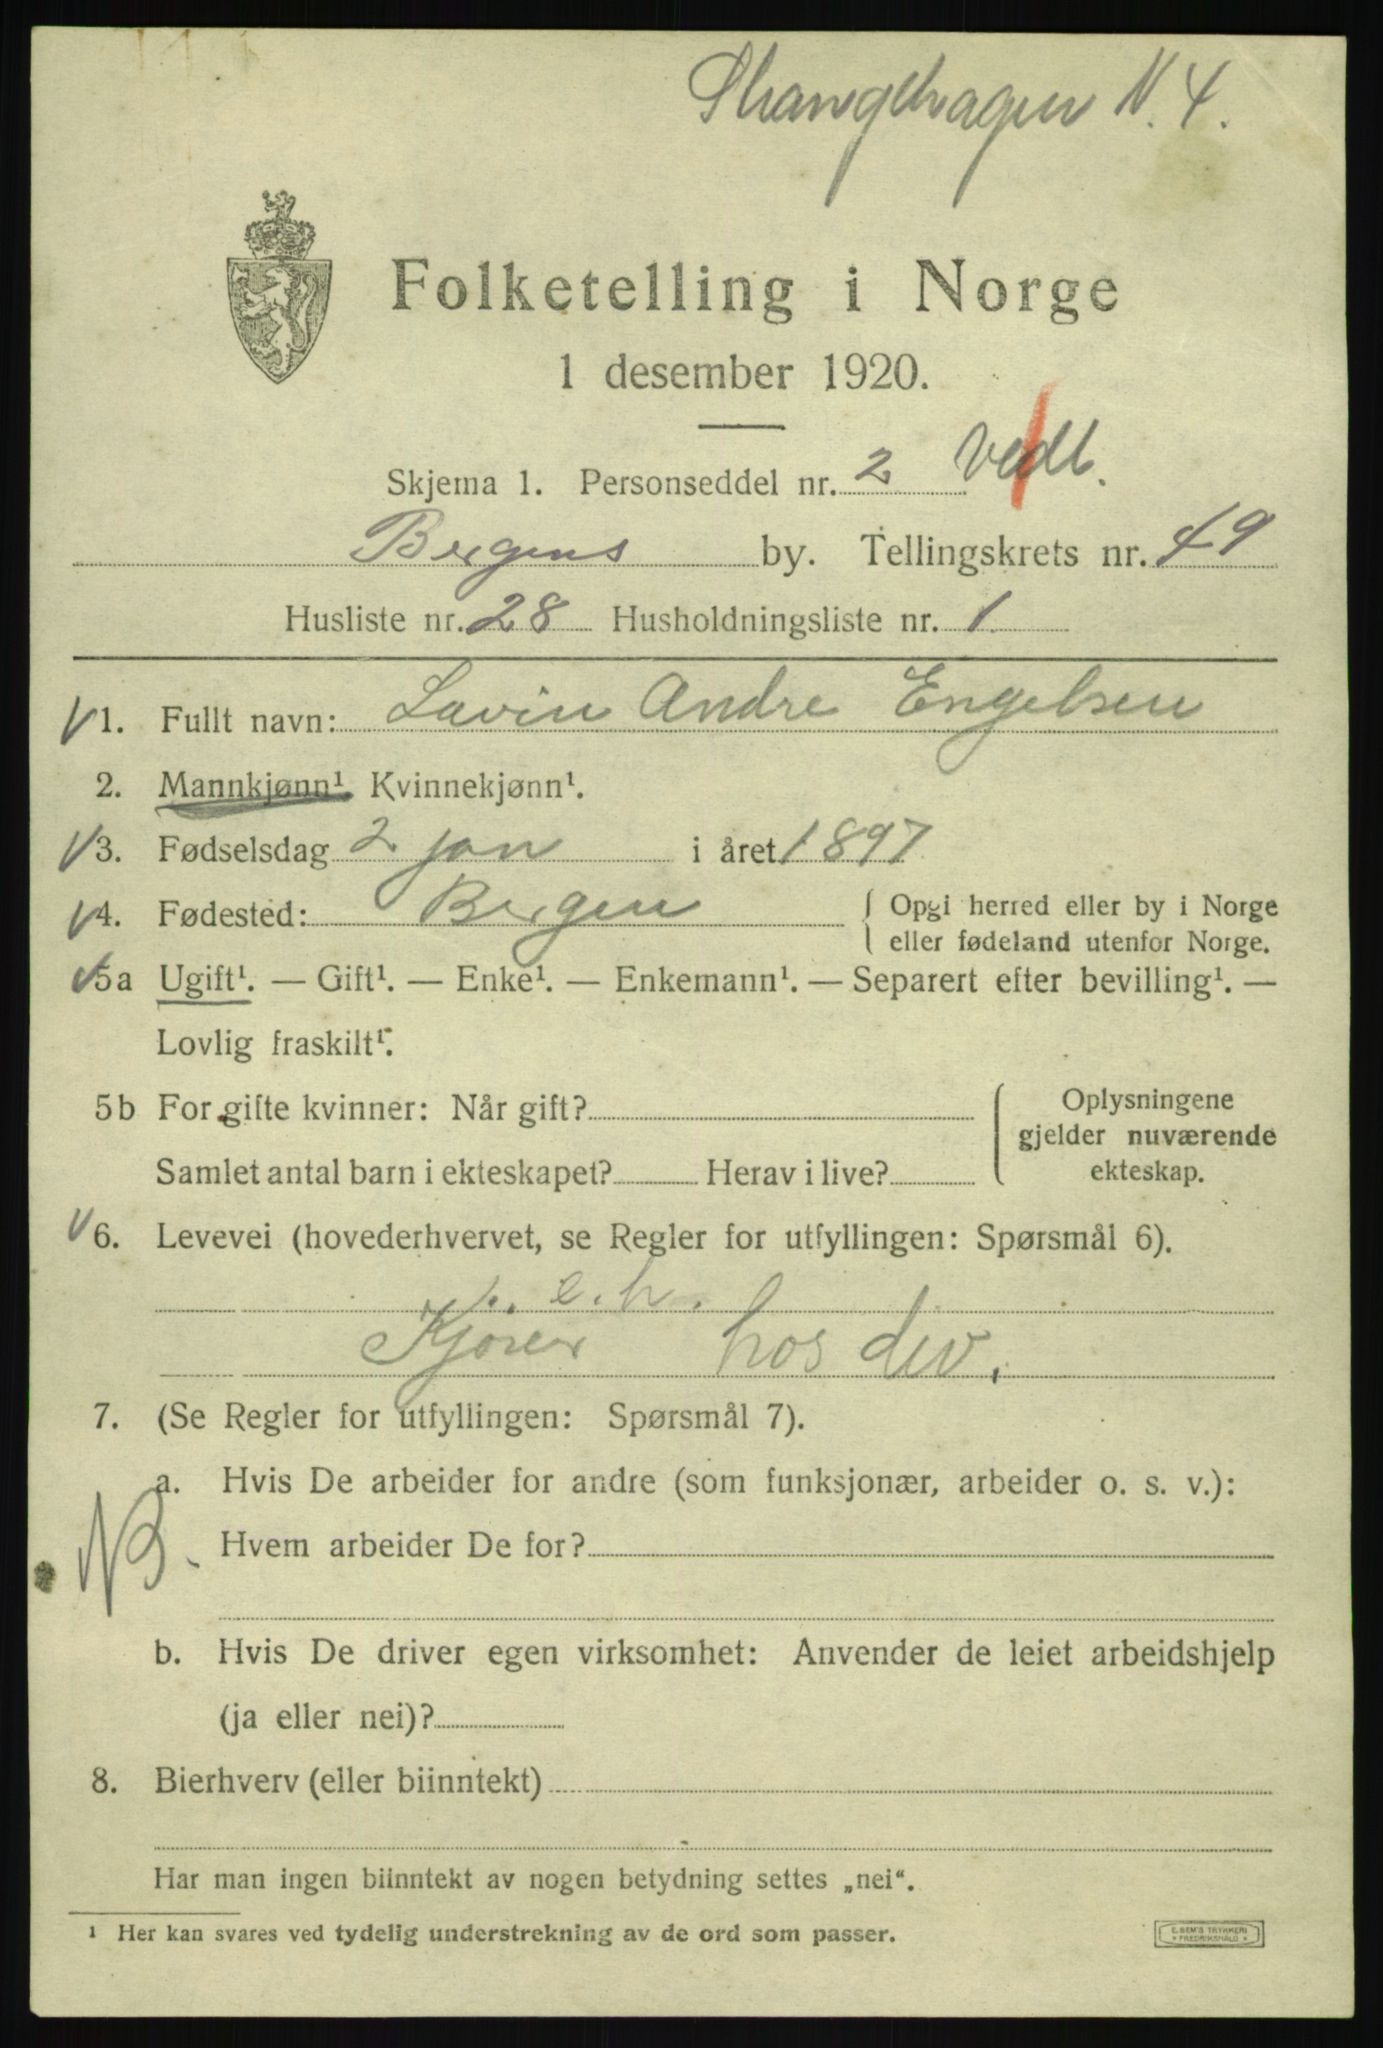 Strangehagen N. 4.
Folketelling i Norge
1 desember 1920.
Skjema 1. Personseddel nr. 2 Vedl.
Bergens by. Tellingskrets nr. 49
Husliste nr. 28 Husholdningsliste nr. 1
V 1. Fullt navn: Lavin Andre Engelsen
2. Mannkjønn¹. Kvinnekjønn¹.
V 3. Fødselsdag 2 jan i året 1897
V 4. Fødested: Bergen { Opgi herred eller by i Norge
eller fødeland utenfor Norge.
V 5a Ugift¹. — Gift¹. — Enke¹. — Enkemann¹. — Separert efter bevilling¹. —
Lovlig fraskilt¹.
5b For gifte kvinner: Når gift? { Oplysningene
gjelder nuværende
Samlet antal barn i ekteskapet? Herav i live? ekteskap.
V 6. Levevei (hovederhvervet, se Regler for utfyllingen: Spørsmål 6).
e. h.
Kjører hos div.
7. (Se Regler for utfyllingen: Spørsmål 7).
a. Hvis De arbeider for andre (som funksjonær, arbeider o. s. v.):
NB. Hvem arbeider De for?
b. Hvis De driver egen virksomhet: Anvender de leiet arbeidshjelp
(ja eller nei)?
8. Bierhverv (eller biinntekt)
Har man ingen biinntekt av nogen betydning settes „nei“.
¹ Her kan svares ved tydelig understrekning av de ord som passer.
E. SEM'S TRYKKERI
* FREDRIKSHALD *